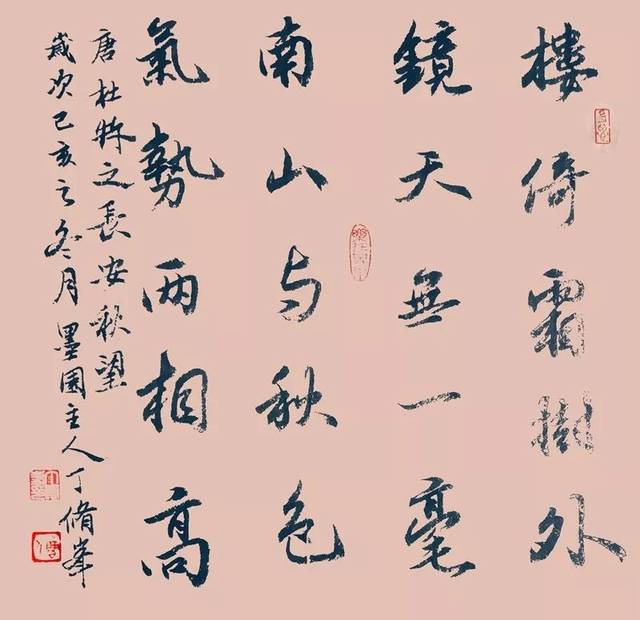 樓倚霜樹外
鏡天無一毫
南山与秋色
氣勢兩相高
唐杜牧之長安秋望
歲次己亥之冬月墨園主人丁脩峯